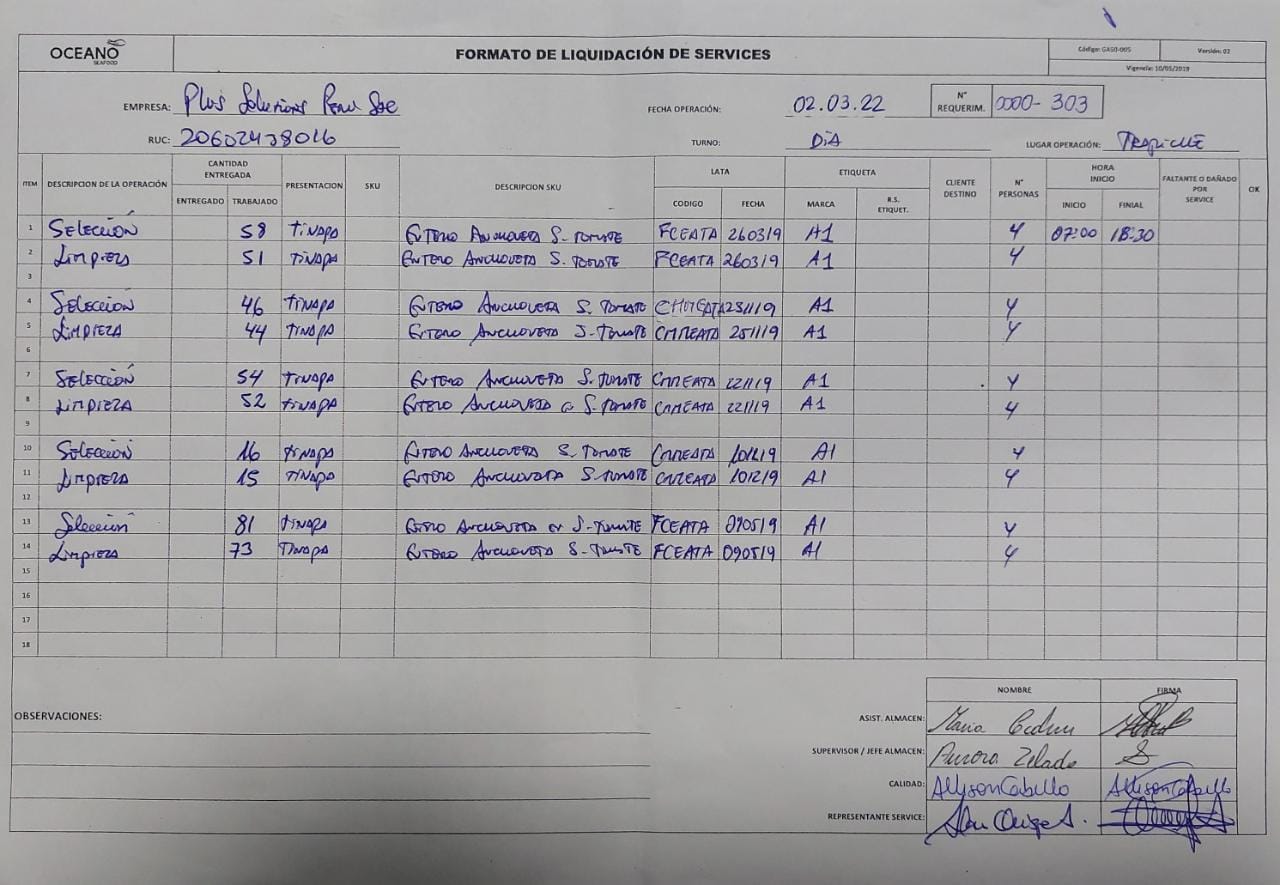 OCEANO
SEAFOOD
FORMATO DE LIQUIDACIÓN DE SERVICES
Código: GASO-005 Versión: 02
Vigencia: 10/05/2019
EMPRESA: Plus Solutions Peru Sac
FECHA OPERACIÓN: 02.03.22
N° REQUERIM. 0000-303
RUC: 20602438016
TURNO: DiA
LUGAR OPERACIÓN: TRAPICHE
ITEM DESCRIPCION DE LA OPERACIÓN CANTIDAD ENTREGADA PRESENTACION SKU DESCRIPCION SKU LATA ETIQUETA CLIENTE DESTINO N° PERSONAS HORA INICIO FALTANTE O DAÑADO POR SERVICE OK
ENTREGADO TRABAJADO CODIGO FECHA MARCA R.S. ETIQUET. INICIO FINIAL
1 SELECCIÓN 58 TINAPA ENTERO ANCHOVETA S. TOMATE FCEATA 260319 A1 4 07:00 18:30
2 LIMPIEZA 51 TINAPA ENTERO ANCHOVETA S. TOMATE FCEATA 260319 A1 4
3
4 SELECCIÓN 46 TINAPA ENTERO ANCHOVETA S. TOMATE 251119 A1 4
5 LIMPIEZA 44 TINAPA ENTERO ANCHOVETA S-TOMATE 251119 A1 4
6
7 SELECCIÓN 54 TINAPA ENTERO ANCHOVETA S. TOMATE 221119 A1 4
8 LIMPIEZA 52 TINAPA ENTERO ANCHOVETA S. TOMATE 221119 A1 4
9
10 SELECCIÓN 16 TINAPA ENTERO ANCHOVETA S. TOMATE 101219 A1 4
11 LIMPIEZA 15 TINAPA ENTERO ANCHOVETA S. TOMATE 101219 A1 4
12
13 Selección 81 TINAPA ENTERO ANCHOVETA S-TOMATE FCEATA 090519 A1 4
14 LIMPIEZA 73 TINAPA ENTERO ANCHOVETA S-TOMATE FCEATA 090519 A1 4
15
16
17
18
NOMBRE FIRMA
OBSERVACIONES:
ASIST. ALMACEN: Maria
SUPERVISOR / JEFE ALMACEN: Aurora Zelada
CALIDAD: Allyson Cabello Allyson Cabello
REPRESENTANTE SERVICE: